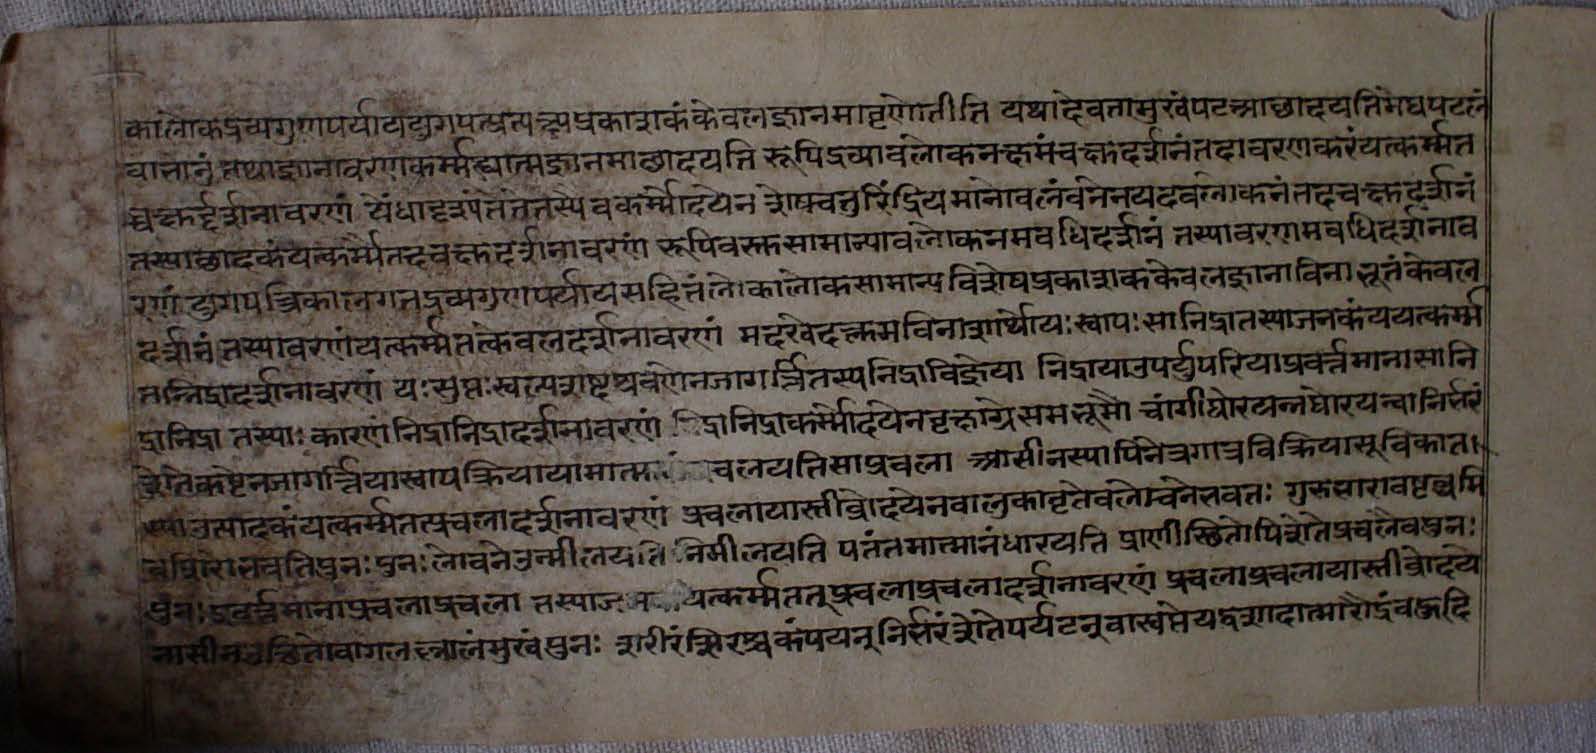 कालोकद्रव्यगुणपर्याययुगपत्प्रत्यक्षप्रकाशकं केवलज्ञानमावृणोतीति यथा देवतामुखंपटआछादयतिमेघपटलं
वा भानुं तथाज्ञानावरणकर्म्मह्यात्मज्ञानमाछादयति रूपिद्रव्यावलोकनक्षमंचक्षुदर्शनंतदावरणकरंयत्कर्म्मत
च्चक्षुर्द्दर्शनावरणं तस्यैवकर्म्मोदयेन शेषचतुरिंद्रियमानोवलंबनेनयदवलोकनंतदचक्षुदर्शनं
तस्याछादकंयत्कर्म्मैतदचक्षुदर्शनावरणं रूपिवस्तुसामान्यावलोकनमवधिदर्शनं तस्यावरणमवधिदर्शनाव
रणं युगपत्त्रिकालगतद्रव्यगुणपर्यायसहितंलोकालोकसामान्यविशेषप्रकाशककेवलज्ञानाविनाभूतंकेवल
दर्शनं तस्यावरणंयत्कर्म्मतत्केवलदर्शनावरणं मदखेदक्लमविनाशार्थोयःस्वापःसानिद्रातस्याजनकंययत्कर्म्म
तन्निद्रादर्शनावरणं यःसुप्तःस्वल्पशब्दश्रवणेनजागर्त्तितस्यनिद्राविज्ञेया निद्रायाउपर्युपरियाप्रवर्त्तमानासानि
द्रानिद्रा तस्याःकारणंनिद्रानिद्रादर्शनावरणं निद्रानिद्राकर्म्मोदयेनवृक्षाग्रेसमभूमौ निर्भरं
शेतेकष्टेनजागर्त्ति यास्वापक्रियायामात्म चलयतिसाप्रचला आसीनस्यापिनेत्रगात्रविक्रियासूचिका
उत्पादकंयत्कर्म्मतत्प्रचलादर्शनावरणं प्रचलायास्तीव्रोदयेनवालुकाभृतेवलोचनेभवतः गुरुभारावष्टब्धमि
वशिरोभवतिपुनःपुनःलोचनेउन्मीलयति निमीलयति पतंतमात्मानंधारयति प्राणीस्थितोपिशेतेप्रचलैवपुनः
पुनःप्रवर्त्तमानाप्रचलाप्रचला तस्या यत्कर्म्मततूप्रचलाप्रचलादर्शनावरणं प्रचलाप्रचलायास्तीव्रोदये
नासीनउत्थितोवागलल्लालंमुखंपुनः शरीरंशिरश्चकंपयन्निर्भरंशेतेपर्यटन्वा यद्वशादात्मारौद्रं